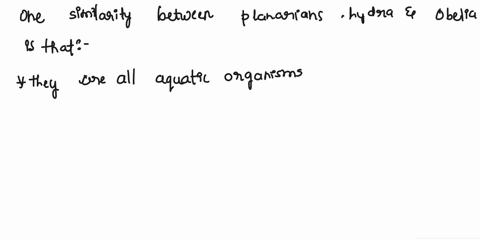 One similarity between planarians , hydra & Obelia
is that:-
* they are all aquatic organisms